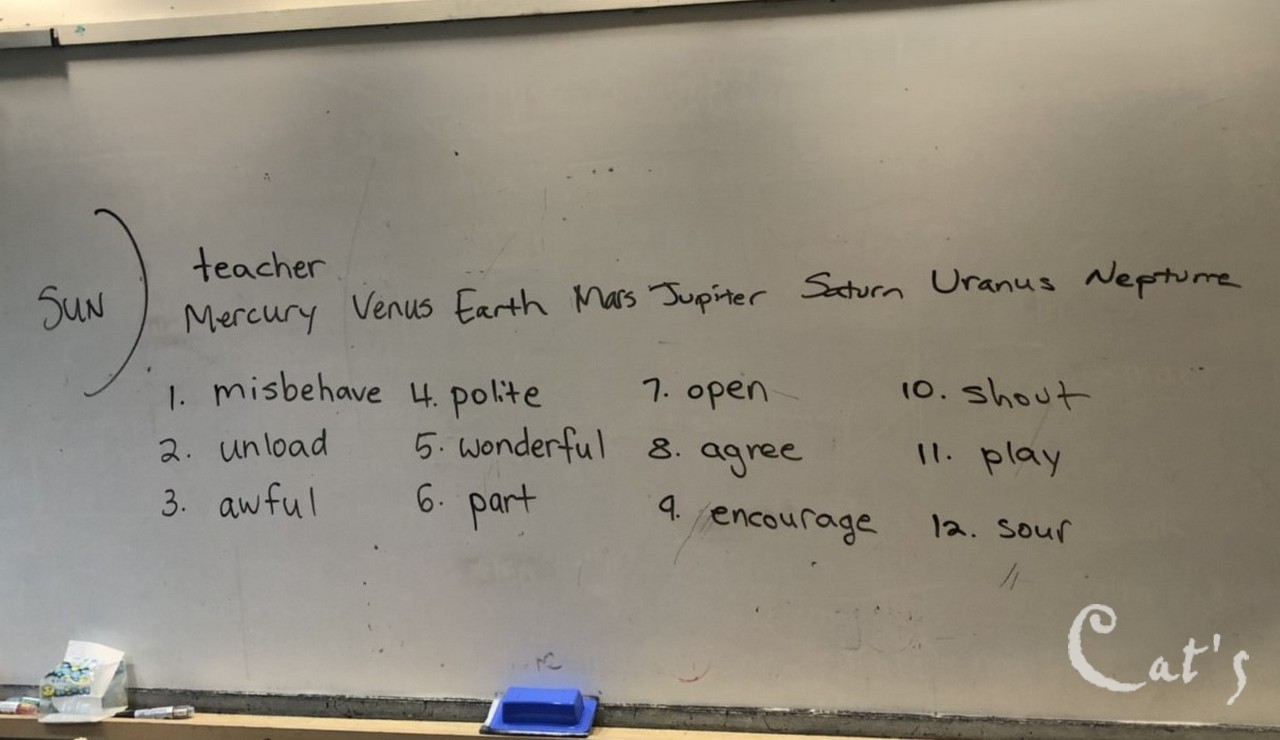 teacher
SUN ) Mercury Venus Earth Mars Jupiter Saturn Uranus Neptume
1. misbehave 4. polite 7. open 10. shout
2. unload 5. wonderful 8. agree 11. play
3. awful 6. part 9. encourage 12. sour
Cat's